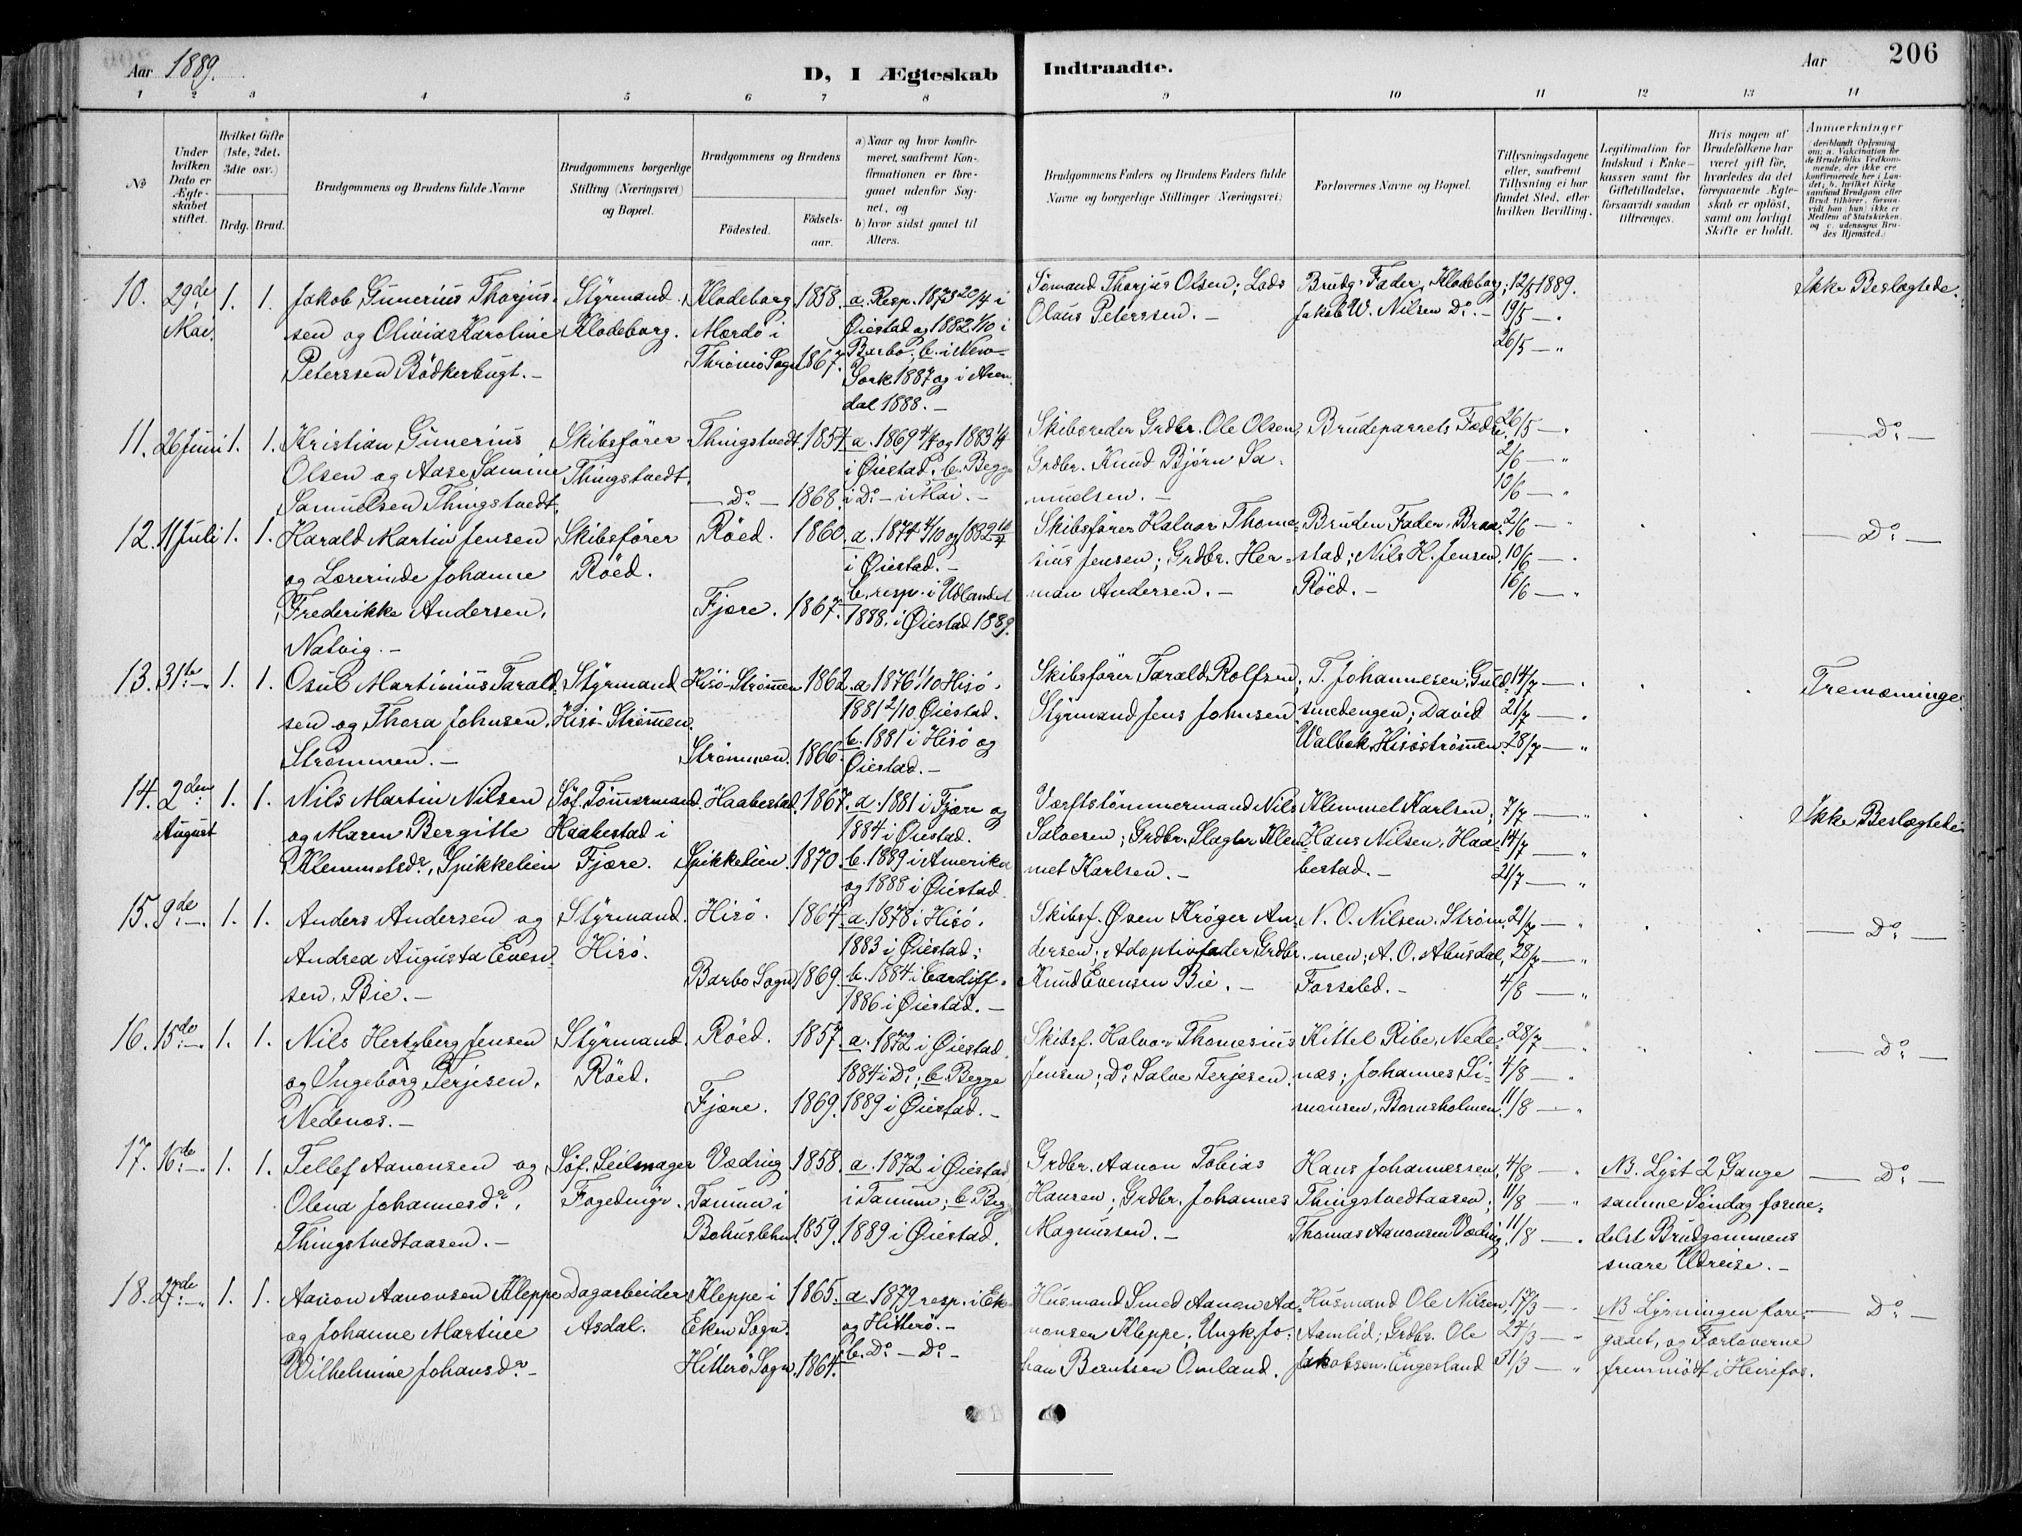 Aar 1889.
D, I Ægteskab Indtraadte.
Aar 206
1 2 3 4 5 6 7 8 9 10 11 12 13 14
№
Under hvilken Dato er Ægteskabet stiftet.
Hvilket Gifte (1ste, 2det, 3dte osv.)
Brdg. Brud.
Brudgommens og Brudens fulde Navne
Brudgommens borgerlige Stilling (Næringsvei) og Bopæl.
Brudgommens og Brudens
Födested. Födselsaar.
a) Naar og hvor konfirmeret, saafremt Konfirmationen er foregaaet udenfor Sognet, og
b) hvor sidst gaaet til Alters.
Brudgommens Faders og Brudens Faders fulde Navne og borgerlige Stillinger (Næringsvei)
Forlovernes Navne og Bopæl.
Tillysningsdagene eller, saafremt Tillysning ei har fundet Sted, efter hvilken Bevilling.
Legitimation for Indskud i Enkekassen samt for Giftetilladelse, forsaavidt saadan tiltrænges.
Hvis nogen af Brudefolkene har været gift før, hvorledes da det foregaaende Ægteskab er oplöst, samt om lovligt Skifte er holdt.
Anmærkninger (deriblandt Oplysning om: a. Vakcination for de Brudefolks Vedkommende, der ikke ere konfirmerede her i Landet; b. hvilket Kirkesamfund Brudgom eller Brud tilhörer, forsaavidt han (hun) ikke er Medlem af Statskirken, og c. udensogns Brudes Hjemsted.)
10. 29de Mai. 1. 1.
Jakob Gunerius Thorjus-
sen og Olivia Karoline
Peterssen Bödkerbugt. -
Styrmand
Klodeborg.
Klodeborg 1858.
Mærdö i
Thrömö Sogn 1867.
a. Resp. 1873 20/4 i
Øiestad og 1882 1/10 i
Barbo; b. i New-
York 1887 og i Aren
dal 1888. -
Sömand Thorjus Olsen; Lods
Olaus Peterssen. -
Brudg. Fader, Klodeborg;
Jakob W. Nilsen Do. -
12/5 1889.
19/5 - "
26/5 - "
Ikke Beslægtede.
11. 26 Juni 1. 1.
Kristian Gunerius
Olsen og Aase Samine
Samuelsen Thingstvedt.
Skibsfører
Thingstvedt.
Thingstvedt. 1854
- Do - 1868.
a. 1869 4/4 og 1883 1/4
i Øiestad. b. Begge
i Do - i Mai. -
Skibsreder Grdbr. Ole Olsen,
Grdbr. Knud Bjørn Sa-
muelsen. -
Brudeparrets Fædre.
26/5 - "
2/6 - "
10/6 - "
- Do -
12. 11 Juli 1. 1.
Harald Martin Jensen
og Lærerinde Johanne
Frederikke Andersen,
Natvig. -
Skibsfører
Röed.
Röed. 1860.
Fjære. 1867.
a. 1874 4/10 og 1882
i Øiestad. -
b. resp. i Udlandet
1888. i Øiestad 1889.
Skibsfører Halvor Thome-
sius Jensen; Grdbr. Her-
man Andersen. -
Bruden Fader, Braa-
stad; Nils H. Jensen
Röed. -
2/6 - "
10/6 - "
16/6 - "
- Do -
13. 31te - 1. 1.
Osul Martinius Tarald-
sen og Thora Johnsen,
Strömmen. -
Styrmand
Hisö-Strömmen.
Hisö-Strömmen 1862.
Strömmen. 1866.
a. 1876 1/10 Hisö.
1881 2/10 Øiestad.
b. 1881 i Hisö og
Øiestad. -
Skibsfører Tarald Rolfsen,
Styrmand Jens Johnsen
T. Johannesen, Guld-
smedengen; David
Walbek, Hisöströmmen.
14/7 - "
21/7 - "
28/7 - "
Tremæninger
14. 2den August 1. 1.
Nils Martin Nilsen
og Maren Bergitte
Klemmetsdr, Spikkelien
Söf. Tömmermand
Haabestad i
Fjære.
Haabestad. 1867.
Spikkelien. 1870.
a. 1881 i Fjære og
1884 i Øiestad.
b. 1889 i Amerika
og 1888 i Øiestad.
Værftstömmermand Nils
Salvesen; Grdbr. Slagter Klem-
met Karlsen. -
Klemmet Karlsen;
Hans Nilsen, Haa-
bestad. -
7/7 - "
14/7 - "
21/7 - "
Ikke Beslægtede
15. 9de - 1. 1.
Anders Andersen og
Andrea Augusta Even-
sen, Bie. -
Styrmand
Hisö.
Hisö. 1864.
Barbo Sogn 1869.
a. 1878 i Hisö.
1883 i Øiestad;
b. 1884 i Cardiff.
1886 i Øiestad. -
Skibsf. Øsen Kröger An-
dersen; Adoptivfader Grdbr.
Knud Evensen Bie. -
N. O. Nilsen, Ström-
men; A. O. Abusdal,
Forseled. -
21/7 - "
28/7 - "
4/8 - "
- Do -
16. 15de - 1. 1.
Nils Hertzberg Jensen
og Ingeborg Terjesen,
Nedenæs. -
Styrmand
Röed.
Röed. 1857.
Fjære. 1869.
a. 1872 i Øiestad.
1884 i Do; b. Begge
1889 i Øiestad. -
Skibsf. Halvor Thomesius
Jensen; Do Salve Terjesen.
Kittel Ribe, Nede-
næs; Johannes Si-
monsen, Bornsholmen.
28/7 - "
4/8 - "
11/8 - "
- Do -
17. 16de - 1. 1.
Tellef Aanonsen og
Olena Johannesdr,
Thingstvedtaasen. -
Söf. Seilmager
Fogedmyr.
Vædrig 1858.
Tanum i
Bohuslehn 1859.
a. 1872 i Øiestad,
i Tanum; b. Beg
1889 i Øiestad.
Grdbr. Aanon Tobias
Hansen; Grdbr. Johannes
Magnussen. -
Hans Johannessen,
Thingstvedtaasen;
Thomas Aanonsen Vædrig.
4/8 - "
11/8 - "
11/8 - "
NB. Lyst 2 Gange
samme Söndag forme-
delst Brudgommens
snare Udreise. -
- Do -
18. 27de - 1. 1.
Aanon Aanonsen Kleppe
og Johanne Martine
Wilhelmine Johansdr -
Dagarbeider
Asdal.
Kleppe i 1865.
Eken Sogn.
Hitterö Sogn. 1864.
a. 1879 resp. i Ek-
og Hitterö. -
b. Do - Do -
Husmand Smed Aanen Aa-
nonsen Kleppe; Ungk. Jo-
han Berntsen Omland.
Husmand Ole Nilsen
Aamlid; Grdbr. Ole
Jakobsen Engesland
17/3 - "
24/3 - "
31/3 - "
NB. Lysningen fore-
gaaet, og Forloverne
fremmödt i Heirefos.
- Do -